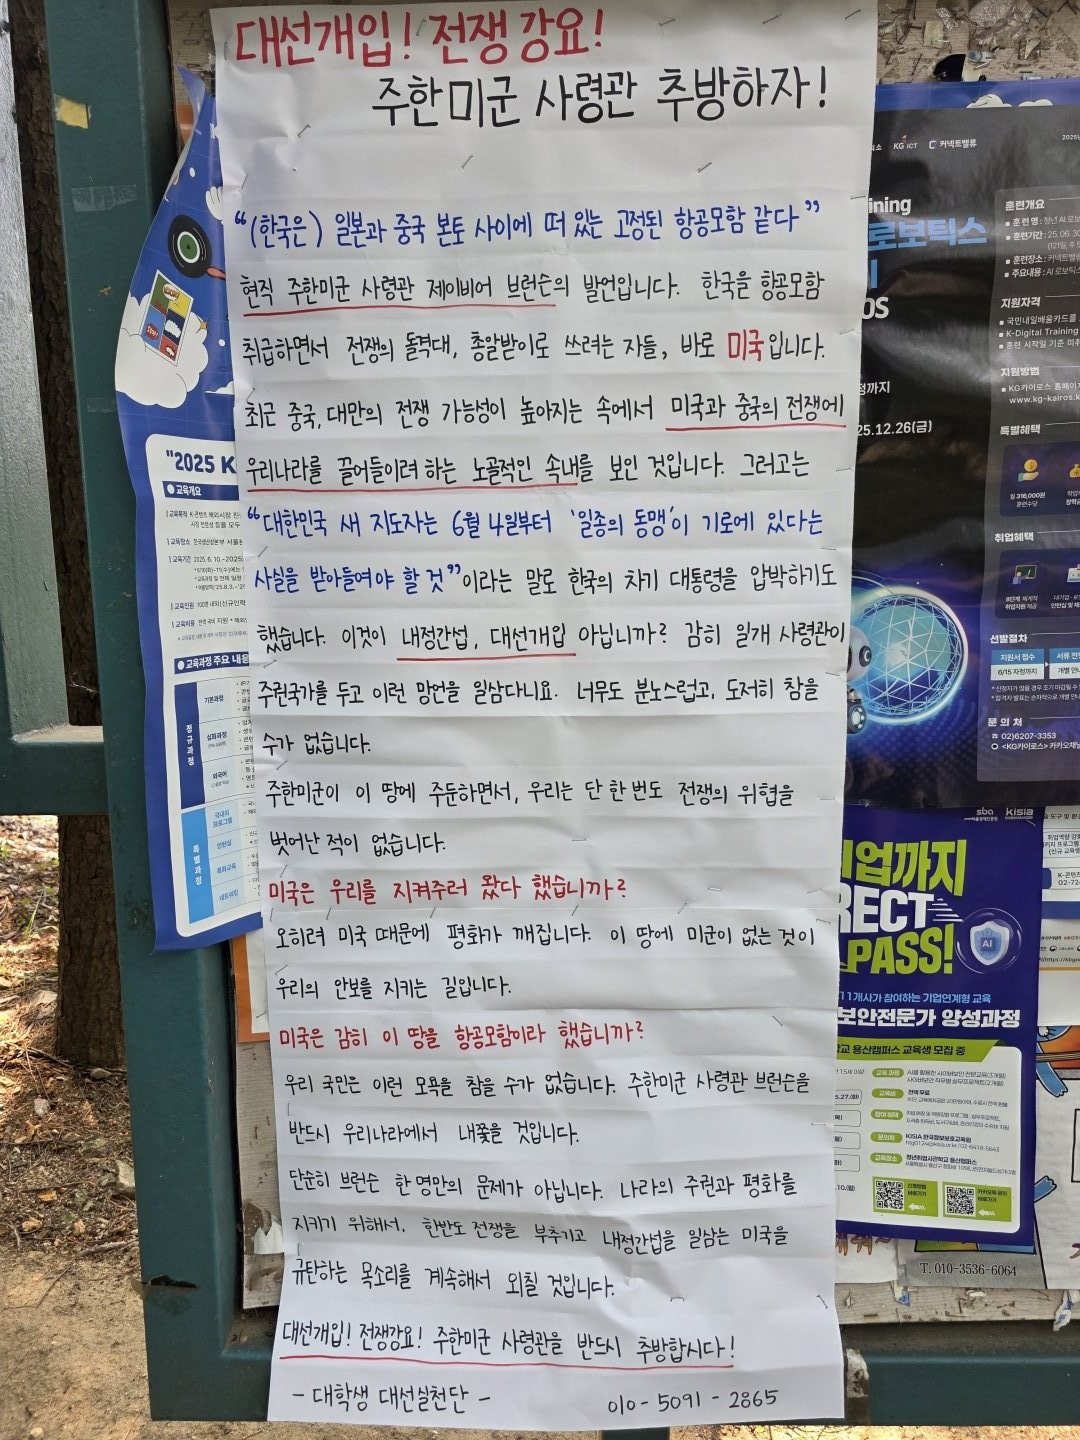 대선개입! 전쟁강요!
주한미군 사령관 추방하자!
“(한국은) 일본과 중국 본토 사이에 떠 있는 고정된 항공모함 같다”
현직 주한미군 사령관 제이비어 브런슨의 발언입니다. 한국을 항공모함
취급하면서 전쟁의 돌격대, 총알받이로 쓰려는 자들, 바로 미국입니다.
최근 중국, 대만의 전쟁 가능성이 높아지는 속에서 미국과 중국의 전쟁에
우리나라를 끌어들이려 하는 노골적인 속내를 보인 것입니다. 그러고는
“대한민국 새 지도자는 6월 4일부터 '일종의 동맹'이 기로에 있다는
사실을 받아들여야 할 것”이라는 말로 한국의 차기 대통령을 압박하기도
했습니다. 이것이 내정간섭, 대선개입 아닙니까? 감히 일개 사령관이
주권국가를 두고 이런 망언을 일삼다니요. 너무도 분노스럽고, 도저히 참을
수가 없습니다.
주한미군이 이 땅에 주둔하면서, 우리는 단 한 번도 전쟁의 위협을
벗어난 적이 없습니다.
미국은 우리를 지켜주러 왔다 했습니까?
오히려 미국 때문에 평화가 깨집니다. 이 땅에 미군이 없는 것이
우리의 안보를 지키는 길입니다.
미국은 감히 이 땅을 항공모함이라 했습니까?
우리 국민은 이런 모욕을 참을 수가 없습니다. 주한미군 사령관 브런슨을
반드시 우리나라에서 내쫓을 것입니다.
단순히 브런슨 한 명만의 문제가 아닙니다. 나라의 주권과 평화를
지키기 위해서, 한반도 전쟁을 부추기고 내정간섭을 일삼는 미국을
규탄하는 목소리를 계속해서 외칠 것입니다.
대선개입! 전쟁강요! 주한미군 사령관을 반드시 추방합시다!
- 대학생 대선실천단 - 010-5091-2865
"2025 K
교육개요
교육과정 주요 내용
정규과정
기본과정
심화과정
외국어
특별과정
국내외 프로그램
인턴십
특화교육
네트워킹
KG ICT 커넥트밸류
ining
로보틱스
OS
25.12.26(금)
훈련개요
지원자격
K-Digital Training
지원방법
www.kg-kairos.k
특별혜택
월 316,000원
훈련수당
취업혜택
선발절차
지원서 접수
6/15 자정까지
문의처
02)6207-3353
<KG카이로스> 카카오채널
sba kisia
업까지
RECT
PASS!
AI
11개사가 참여하는 기업연계형 교육
보안전문가 양성과정
교 용산캠퍼스 교육생 모집 중
교육 과정
교육비
전액 무료
참여 혜택
문의처
KISIA 한국정보보호교육원
교육장소
청년취업사관학교 용산캠퍼스
T. 010-3536-6064